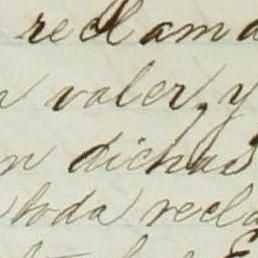 reclama
n valer, y
n dichas
toda recla